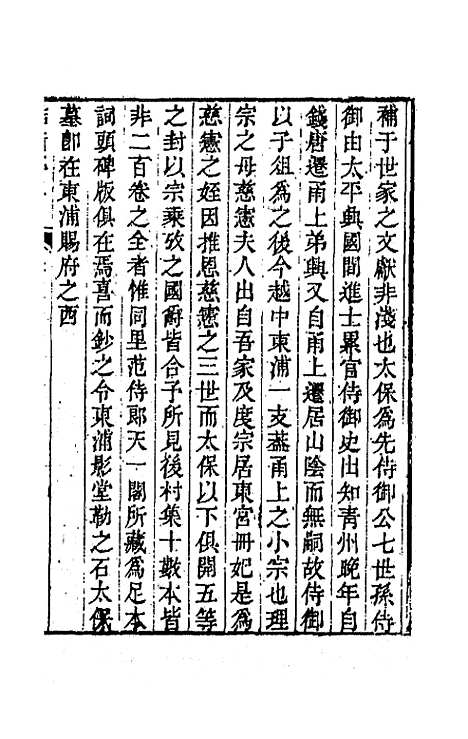 補于世家之文獻非淺也太保爲先侍御公七世孫侍
御由太平興國間進士累官侍御史出知青州晚年自
錢唐遷甬上弟興又自甬上遷居山陰而無嗣故侍御
以子徂爲之後今越中東浦一支蓋甬上之小宗也理
宗之母慈憲夫人出自吾家及度宗居東宮冊妃是爲
慈憲之姪因推恩慈憲之三世而太保以下俱開五等
之封以宗乘攷之國嗣皆合予所見後村集十數本皆
非二百卷之全者惟同里范侍郎天一閣所藏爲足本
詞頭碑版俱在焉喜而鈔之令東浦影堂勒之石太保
墓卽在東浦賜府之西